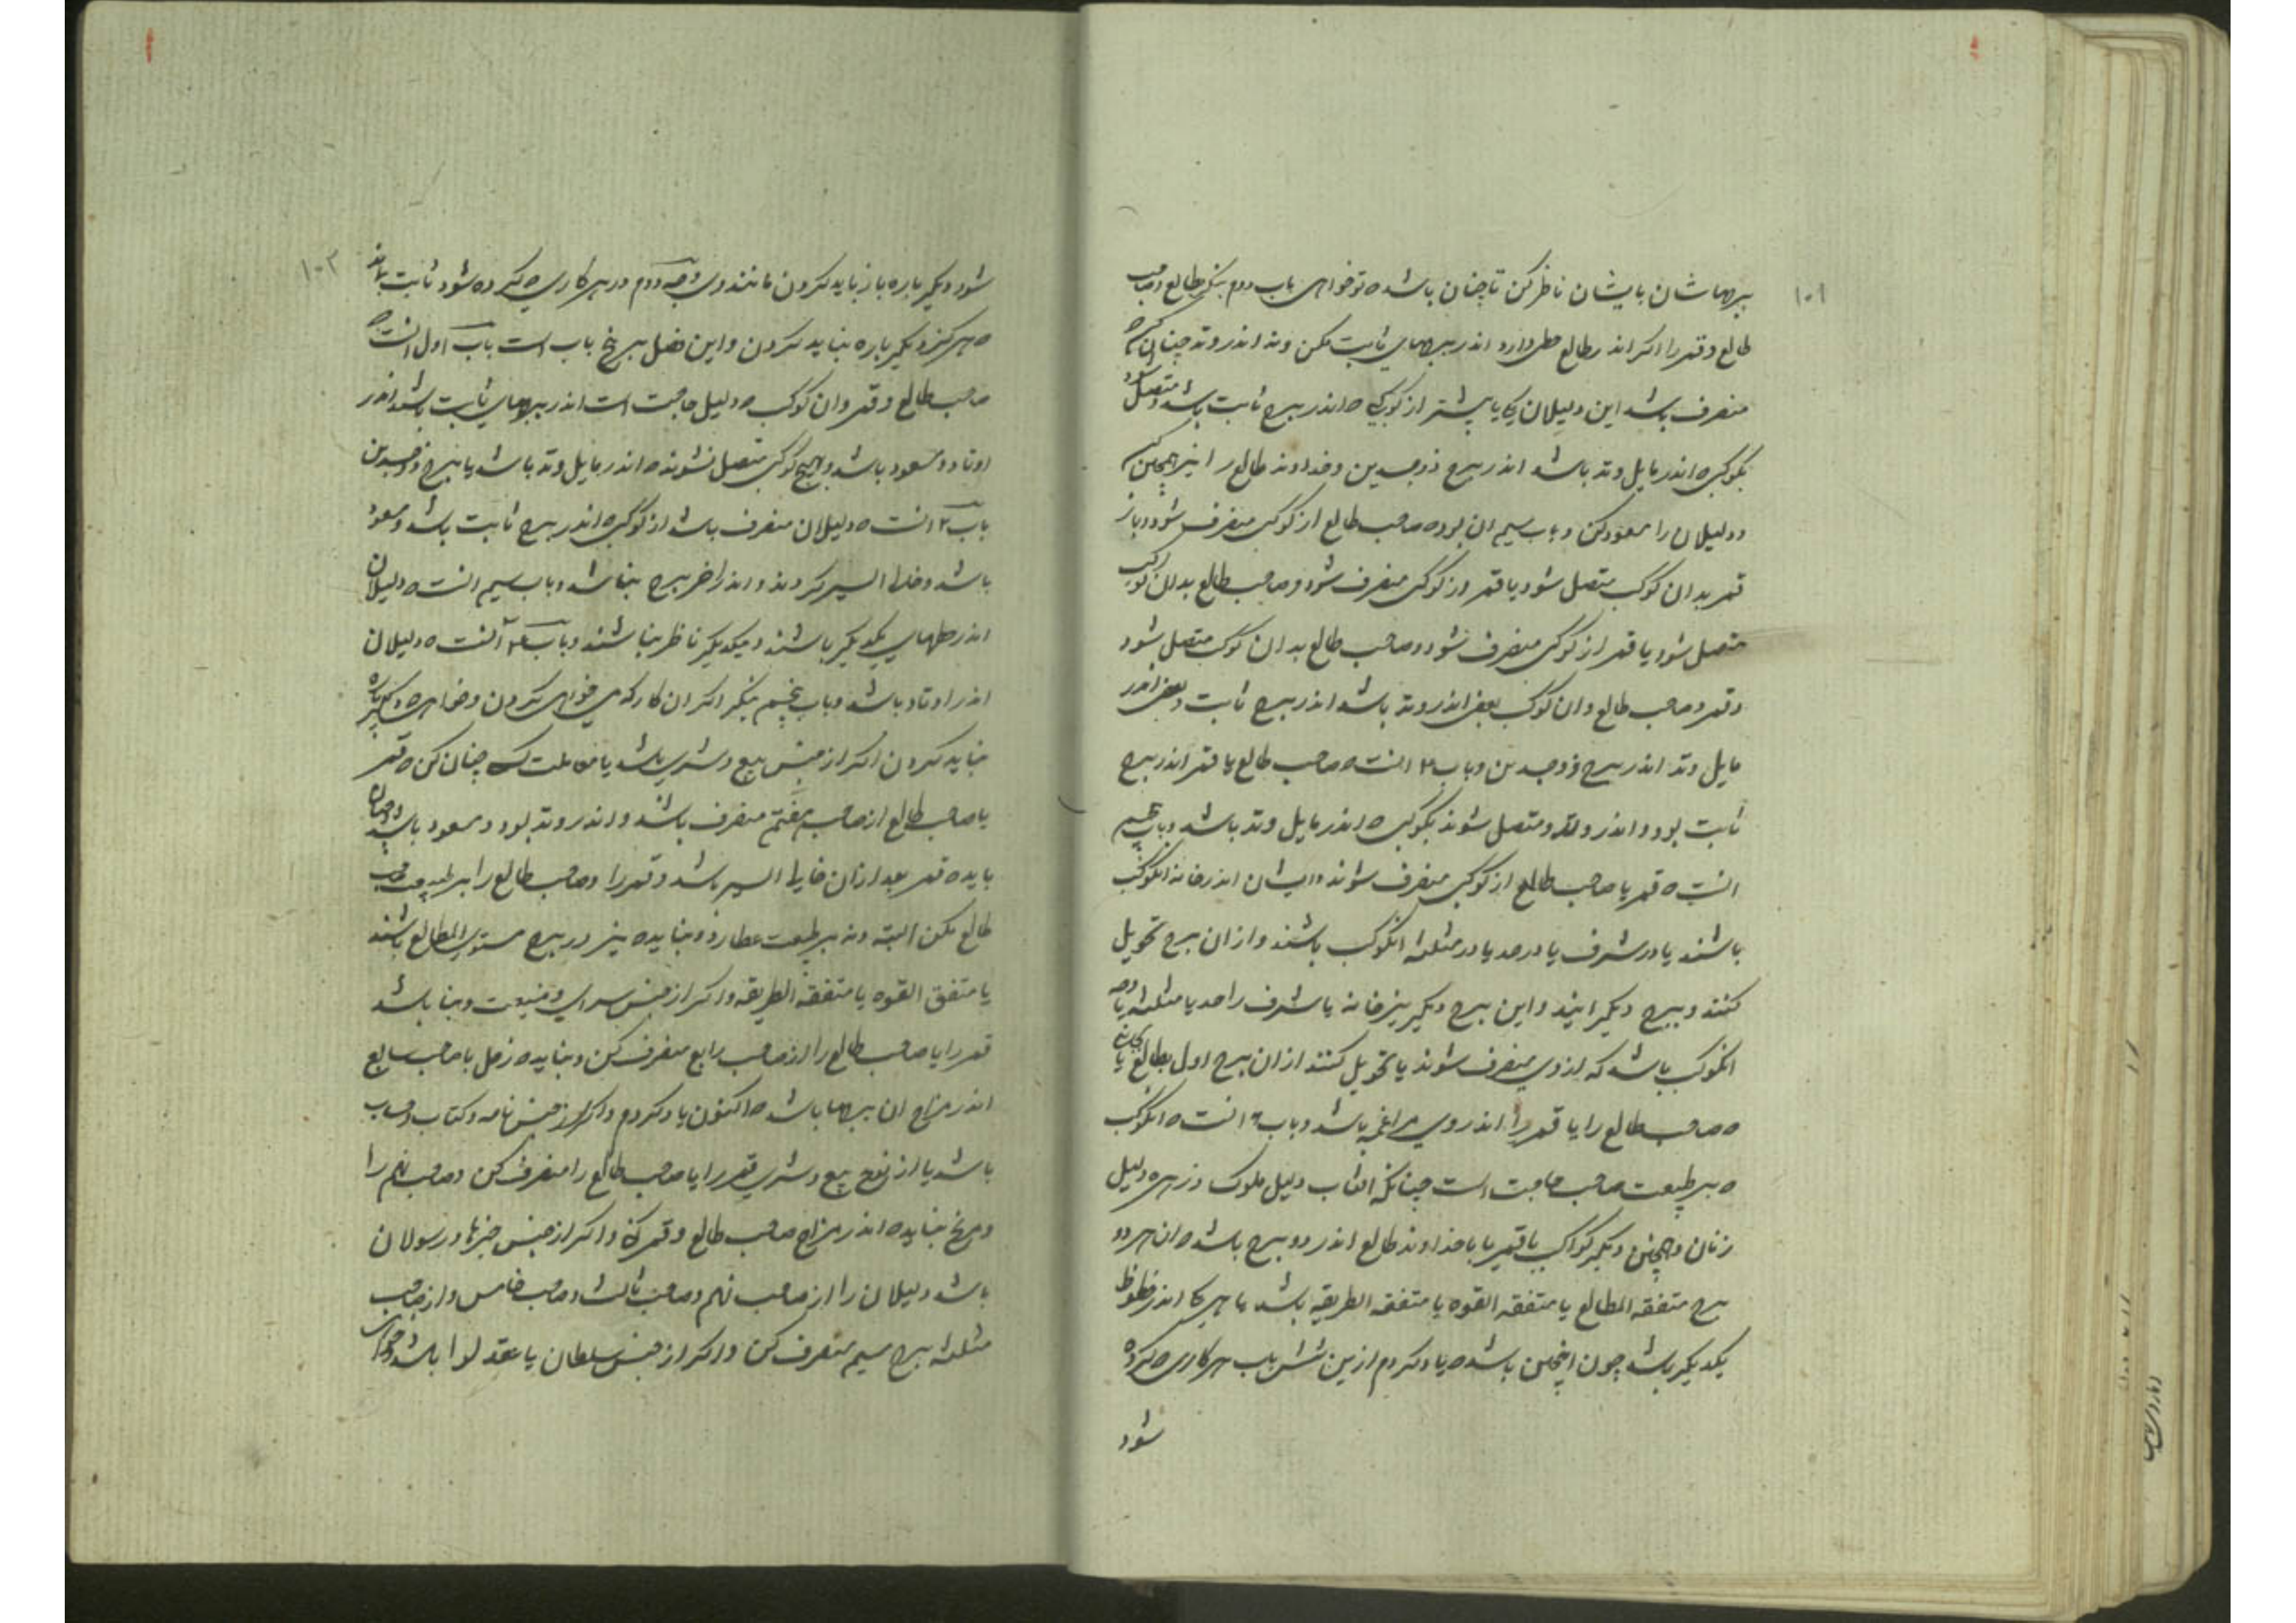 ١٠١
ببرجهاشان بایشان ناظر کن تا چنان باشد ه تو خواهی باب دوم بنگر طالع وصاحب
طالع وقمر را اگر اندر طالع حظی دارد اندر برجهای ثابت مکن ونه اندر وتد چنان کن ه
منصرف باشد این دلیلان یکی یا بیشتر از کوکبی ه اندر برج ثابت باشد ومتصل شود
بکوکبی ه اندر مایل وتد باشد اندر برج ذوجسدین وخداوند طالع را نیز همچنین کن
ودلیلان را مسعود کن وباب سیم ان بود ه صاحب طالع از کوکبی منصرف شود وباز
قمر بدان کوکب متصل شود یا قمر از کوکبی منصرف شود وصاحب طالع بدان کوکب
متصل شود یا قمر از کوکبی منصرف شود وصاحب طالع بدان کوکب متصل شود
وقمر وصاحب طالع وان کوکب بعضی اندر وتد باشد اندر برج ثابت وبعضی اندر
مایل وتد اندر برج ذوجسدین وباب ۴ انست ه صاحب طالع یا قمر اندر برج
ثابت بود واندر وتد ومتصل شوند بکوکبی ه اندر مایل وتد باشد وباب پنجم
انست ه قمر یا صاحب طالع از کوکبی منصرف شوند وایشان اندر خانه انکوکب
باشند یا در شرف یا در حد یا در مثلثه انکوکب باشند وازان برج تحویل
کنند وببرج دیگر ایند واین برج دیگر نیز خانه یا شرف را حد یا مثلثه یا وجه
انکوکب باشد که ازوی منصرف شوند یا تحویل کنند ازان برج اول بطالع یا بخانه
ه صاحب طالع را یا قمر را اندر وی مزاعمه باشد وباب ٦ انست ه انکوکب
ه بر طبیعت صاحب حاجت است چنانکه افتاب دلیل ملوک وزهره دلیل
زنان وهمچنین دیگر کواکب یا قمر یا با خداوند طالع اندر دو برج باشد ه ان هر دو
برج متفقه المطالع یا متفقه القوه یا متفقه الطریقه باشد یا هر یکی اندر حظوظ
یکدیگر باشد چون اینچنین باشد ه یاد کردم ازین شش باب هر کاری ه کرده
شود
١٠٢
شود دیگر باره باز نباید کردن مانند وی وجه دوم در هر کاری ه کرده شود ثابت بماند
ه هرگز دیگر باره نباید کردن واین فصل بر پنج باب است باب اول انست ه
صاحب طالع وقمر وان کوکب ه دلیل حاجت است اندر برجهای ثابت باشند اندر
اوتاد ومسعود باشد وبهیچ کوکبی متصل نشوند ه اندر مایل وتد باشد یا ببرج ذوجسدین
باب ۲ انست ه دلیلان منصرف باشد از کوکبی ه اندر برج ثابت باشد ومسعود
باشد وخالی السیر گردند واندر اخر برج نباشد وباب سیم انست ه دلیلان
اندر حظهای یکدیگر باشند وبیکدیگر ناظر نباشند وباب ۴ آنست ه دلیلان
اندر اوتاد باشد وباب پنجم بنگر اگر ان کار که می خواهی کردن وخواهی ه دیگر باره
نباید کردن اگر از جنس بیع وشری باشد یا معاملت است چنان کن ه قمر
یا صاحب طالع از صاحب هفتم منصرف باشد واندر وتد بود ومسعود باشد وچنان
باید ه قمر بعد ازان خالی السیر باشد وقمر را وصاحب طالع را بر طبیعت صاحب
طالع مکن البته ونه بر طبیعت عطارد ونباید ه نیز در برج مستوی المطالع باشند
یا متفق القوه یا متفقه الطریقه واگر از جنس سرای وضیعت وبنا باشد
قمر را یا صاحب طالع را از صاحب رابع منصرف کن ونباید ه زحل یا صاحب سابع
اندر مزاج ان برجها باشد ه اکنون یاد کردم واگر از جنس نامه وکتاب وحساب
باشد یا از نوع بیع وشری قمر را یا صاحب طالع را منصرف کن وصاحب نهم را
ومریخ نباید ه اندر مزاج صاحب طالع وقمر کند واگر از جنس خبرها ورسولان
باشد دلیلان را از صاحب نهم وصاحب ثالث وصاحب خامس واز صاحب
مثلثه برج سیم منصرف کن واگر از جنس سلطان یا عقد لوا باشد